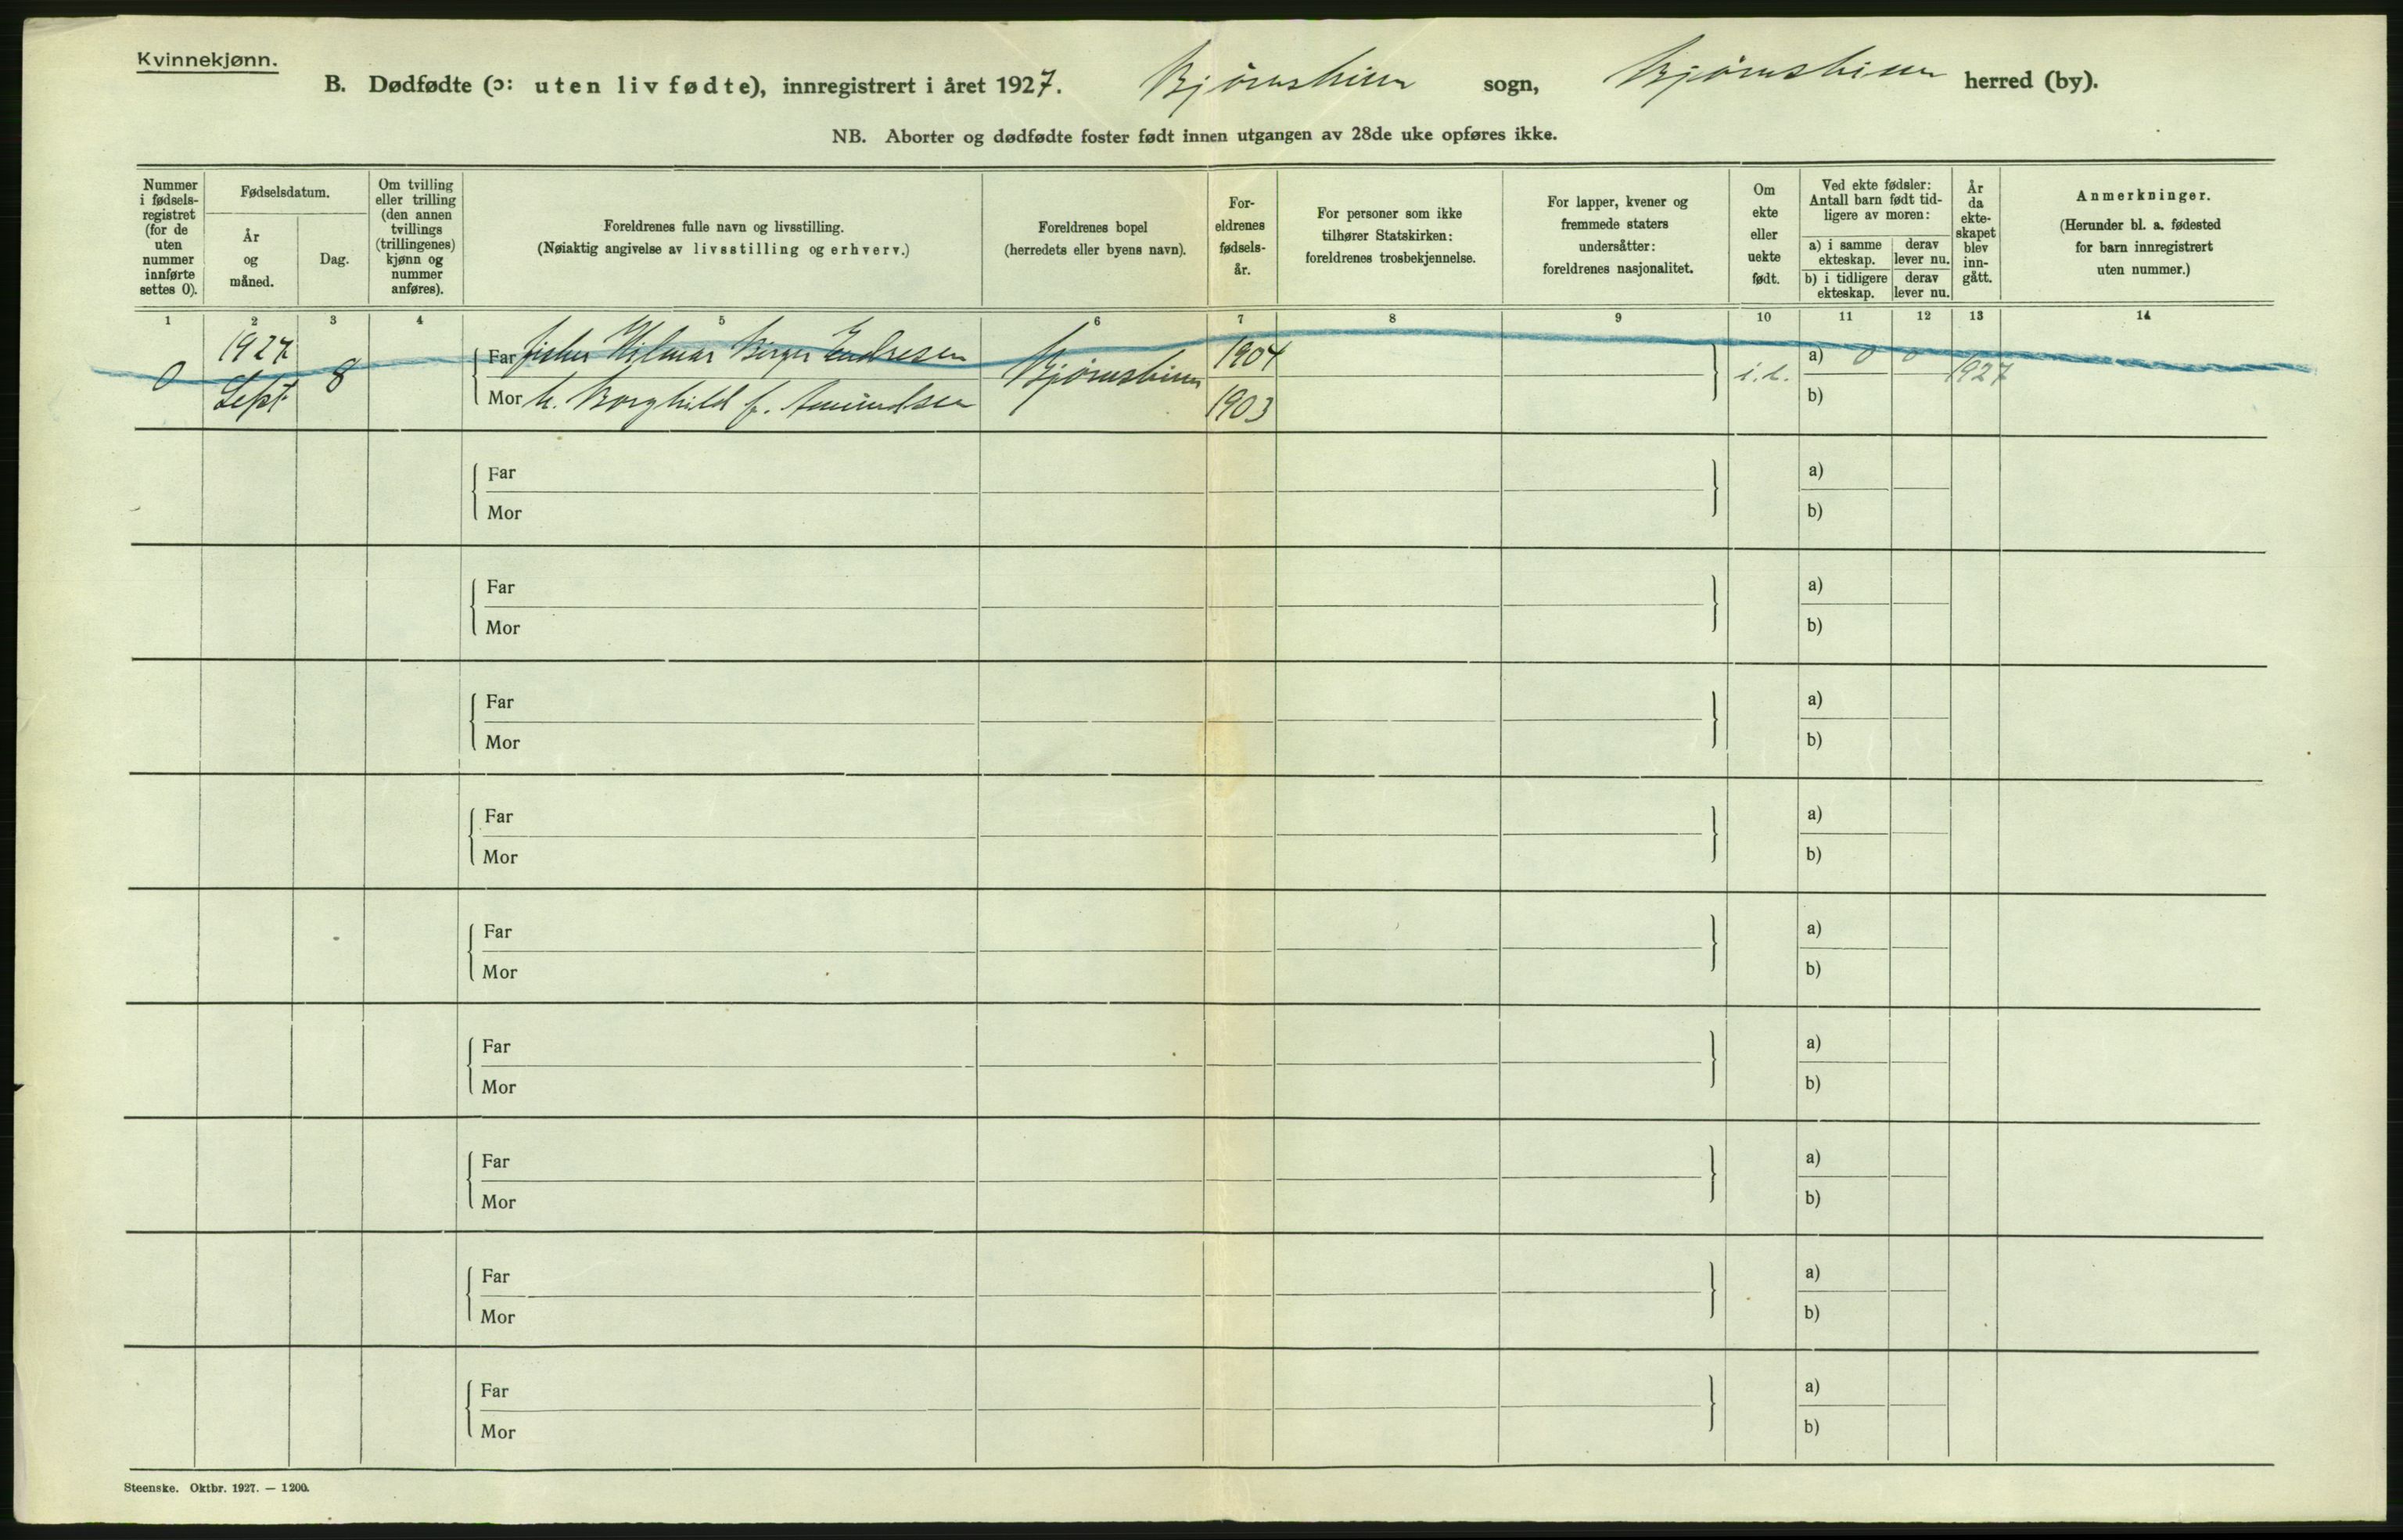 Kvinnekjønn.
B. Dødfødte (ɔ: uten liv fødte), innregistrert i året 1927. Bjørnskinn sogn, Bjørnskinn herred (by).
NB. Aborter og dødfødte foster født innen utgangen av 28de uke opføres ikke.
Nummer i fødselsregistret (for de uten nummer innførte settes 0).
Fødselsdatum.
År og måned.
Dag.
Om tvilling eller trilling (den annen tvillings (trillingenes) kjønn og nummer anføres).
Foreldrenes fulle navn og livsstilling.
(Nøiaktig angivelse av livsstilling og erhverv.)
Foreldrenes bopel
(herredets eller byens navn).
Foreldrenes fødselsår.
For personer som ikke tilhører Statskirken: foreldrenes trosbekjennelse.
For lapper, kvener og fremmede staters undersåtter: foreldrenes nasjonalitet.
Om ekte eller uekte født.
Ved ekte fødsler: Antall barn født tidligere av moren:
a) i samme ekteskap.
derav lever nu.
b) i tidligere ekteskap.
derav lever nu.
År da ekteskapet blev inngått.
Anmerkninger.
(Herunder bl. a. fødested for barn innregistrert uten nummer.)
1 2 3 4 5 6 7 8 9 10 11 12 13 14
0 1927 Sept 8
Far fisker Hilmar Birger Endresen Bjørnskinn 1904 a) 0 0 1927
Mor h. Borghild f. Amundsen 1903 b)
Far a)
Mor b)
Far a)
Mor b)
Far a)
Mor b)
Far a)
Mor b)
Far a)
Mor b)
Far a)
Mor b)
Far a)
Mor b)
Far a)
Mor b)
Far a)
Mor b)
Steenske. Oktbr. 1927. — 1200.